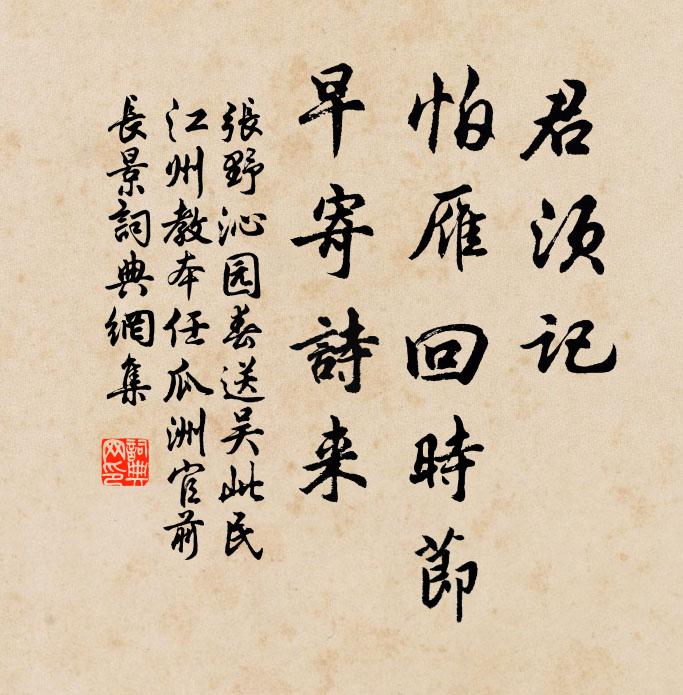 君须记
怕雁回時節
早寄詩来
張野沁园春送吴此民
江州教本任瓜洲官前
長景詞典網集
詞典网印